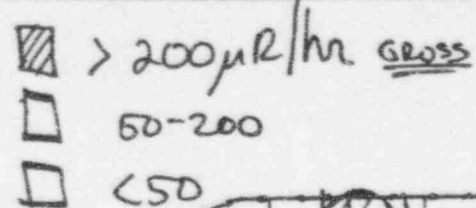 > 200 μR/hr GROSS
50-200
<50